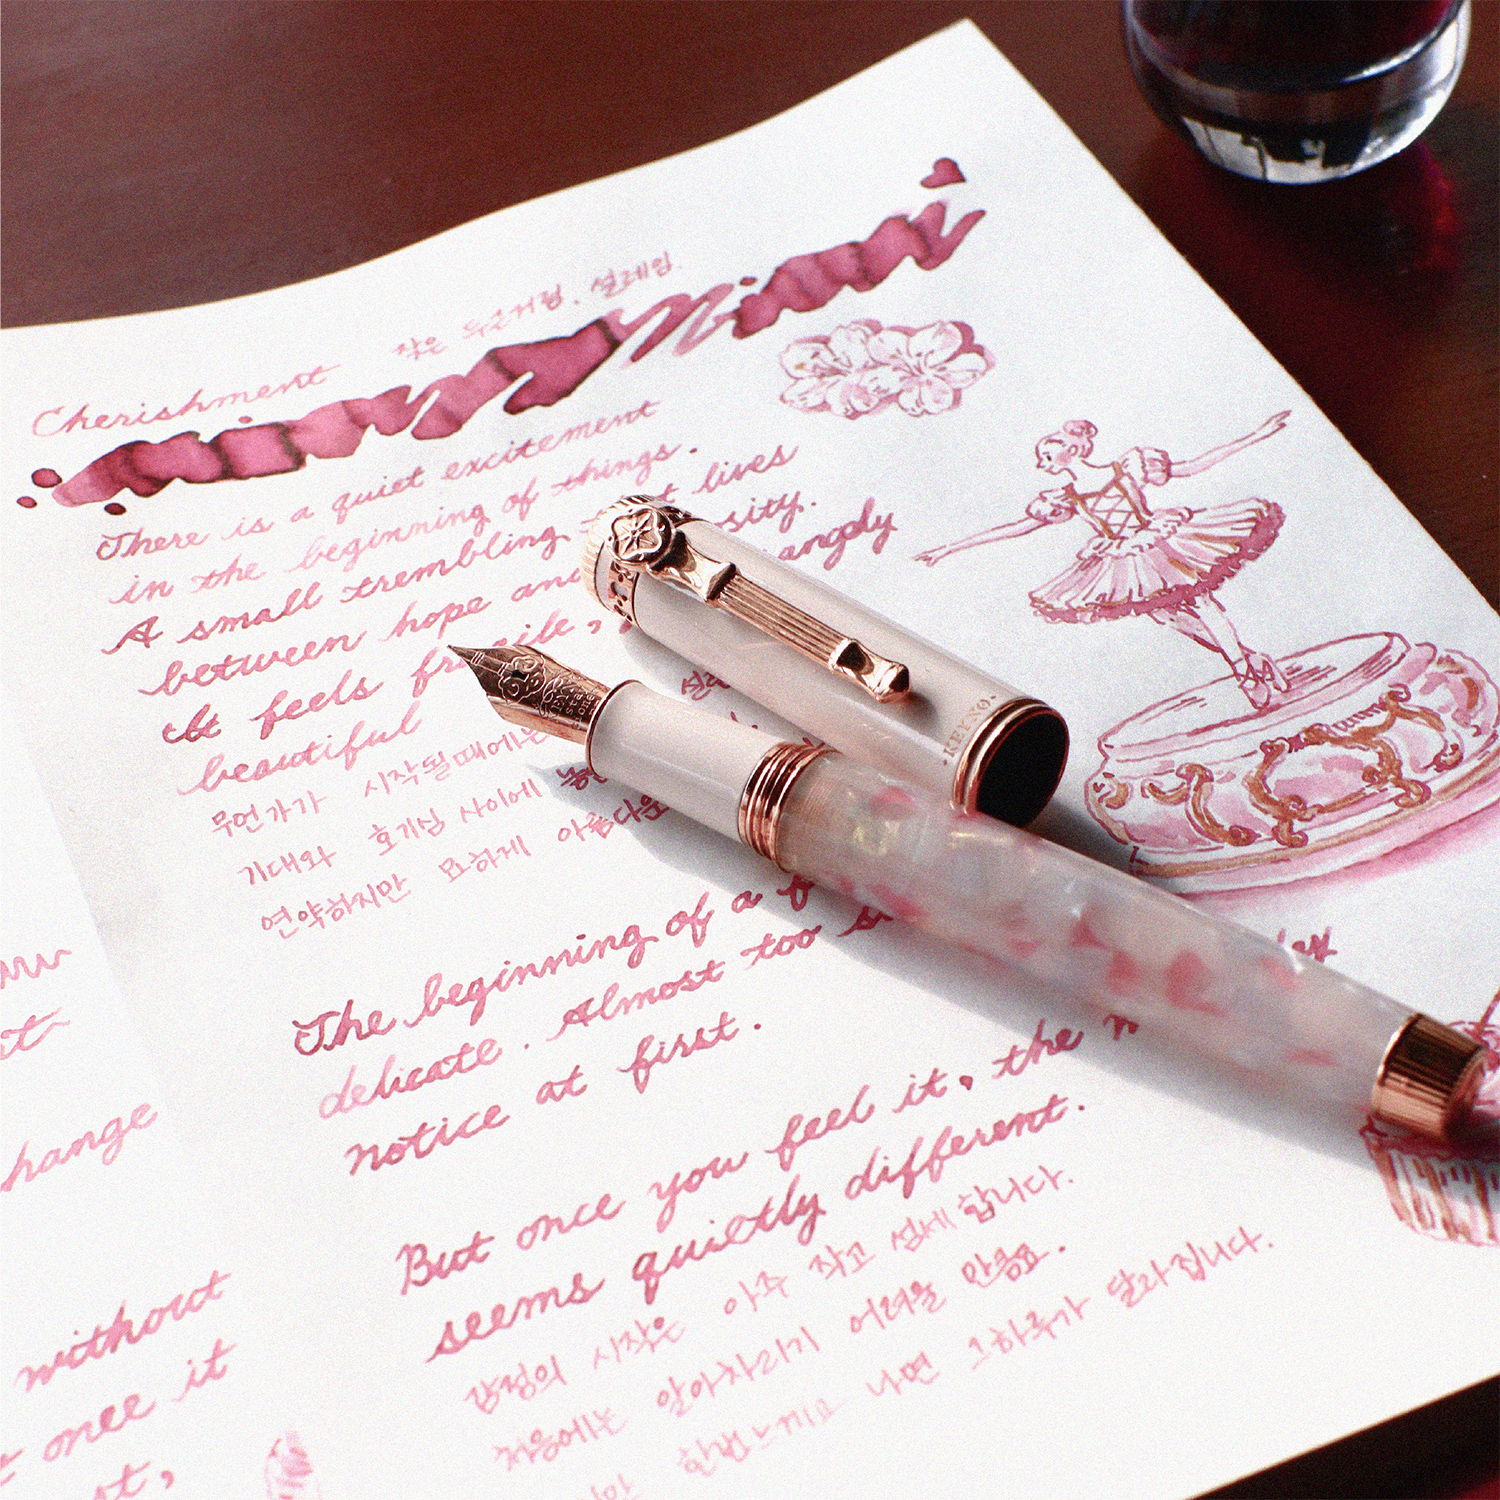 Cherishment
작은 두근거림. 설레임.
There is a quiet excitement
in the beginning of things.
A small trembling t lives
between hope and osity.
It feels fragile, angely
beautiful
무언가가 시작될때에는
기대와 호기심 사이에
연약하지만 묘하게 아름다운
The beginning of a f
delicate. Almost too
notice at first.
But once you feel it, the
seems quietly different.
감정의 시작은 아주 작고 섬세합니다.
처음에는 알아차리기 어려울 만큼요.
한번 느끼고 나면 그 하루가 달라집니다.
hange
without
once it
st,
KEYNO.
Esta
sta
one